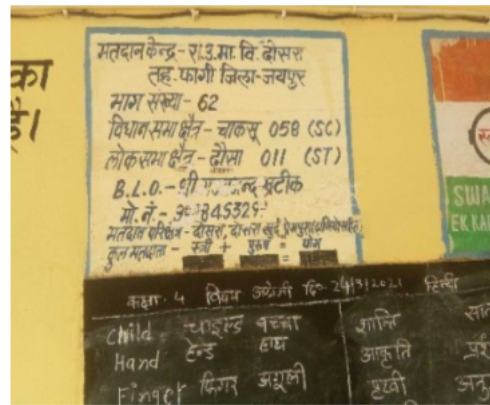 का
है।
मतदान केन्द्र - रा.उ.मा.वि. दोसरा
तह. फागी जिला - जयपुर
भाग संख्या - 62
विधानसभा क्षैत्र - चाकसू 058 (SC)
लोकसभा क्षैत्र - दौसा 011 (ST)
B.L.O. - श्री खटीक
मो. नं. -
मतदान परिक्षेत्र - दोसरा, दोसरा खुर्द,
कुल मतदाता - स्त्री + पुरुष = योग
SWA
EK KA
कक्षा - 4 विषय अंग्रेजी दि. 24/3/2021 हिन्दी
Child चाइल्ड बच्चा शान्ति
Hand हेन्ड हाथ आकृति
Finger फिंगर अंगूली पृथ्वी